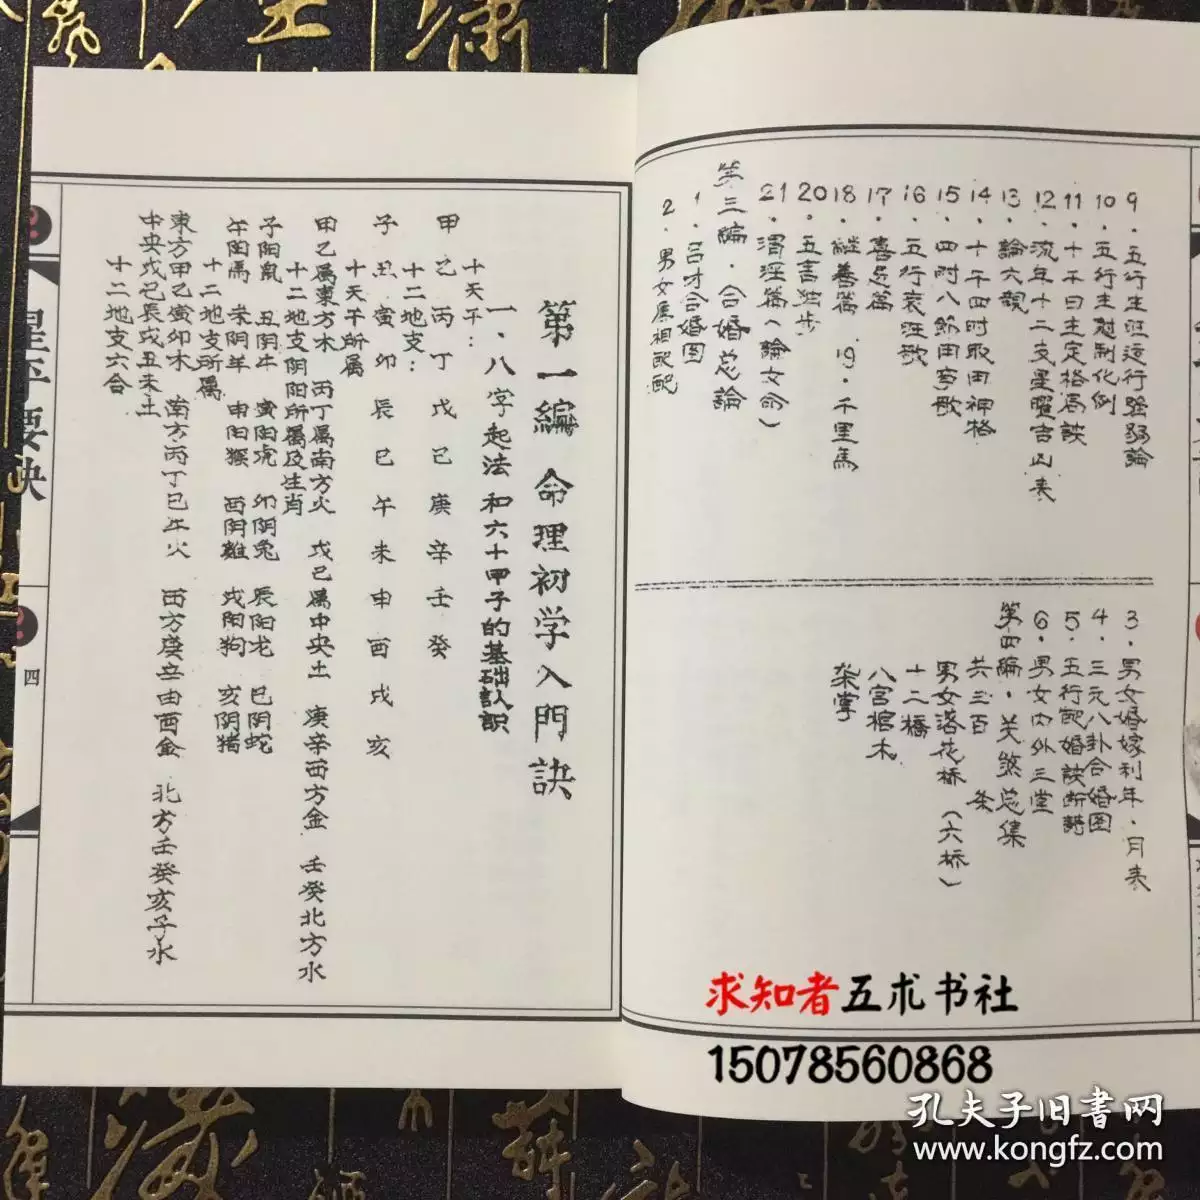 9．五行生旺运行强弱論
10．五行生尅制化例
11．十干日主定格局訣
12．流年十二支星曜吉凶表
13．論六親
14．十干四时取用神格
15．四时八節用事歌
16．五行衰旺歌
17．喜忌篇
18．継善篇　19．千里馬
20．五言独步
21．渭泾篇（論女命）
第三編．合婚总論
1．吕才合婚图
2．男女属相配配
3．男女婚嫁利年．月表
4．三元八卦合婚图
5．五行配婚訣断語
6．男女内外三堂
第四編．关煞总集
共三百　条
男女落花桥（六桥）
十二橋
八宫棺木
架掌
第一編　命理初学入門訣
一．八字起法和六十甲子的基础认识
十天干：
甲乙丙丁戊己庚辛壬癸
十二地支：
子丑寅卯辰巳午未申酉戌亥
十天干所属
甲乙属東方木　丙丁属南方火　戊己属中央土　庚辛西方金　壬癸北方水
十二地支阴阳所属及生肖
子阳鼠　丑阴牛　寅阳虎　卯阴兔　辰阳龙　巳阴蛇
午阳馬　未阴羊　申阳猴　酉阴雞　戌阳狗　亥阴猪
十二地支所属
東方甲乙寅卯木　南方丙丁巳午火　西方庚辛申酉金　北方壬癸亥子水
中央戊己辰戌丑未土
十二地支六合
星平要诀
四
求知者五术书社
15078560868
孔夫子旧書网
www.kongfz.com